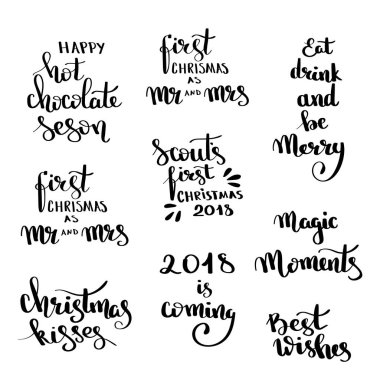 HAPPY
hot
chocolate
seson
first
CHRISMAS
AS
Mr AND Mrs
Eat
drink
and
be
Merry
first
CHRISMAS
AS
Mr AND Mrs
Scout's
first
CHRISTMAS
2018
Magic
Moments
Christmas
kisses
2018
is
coming
Best
wishes